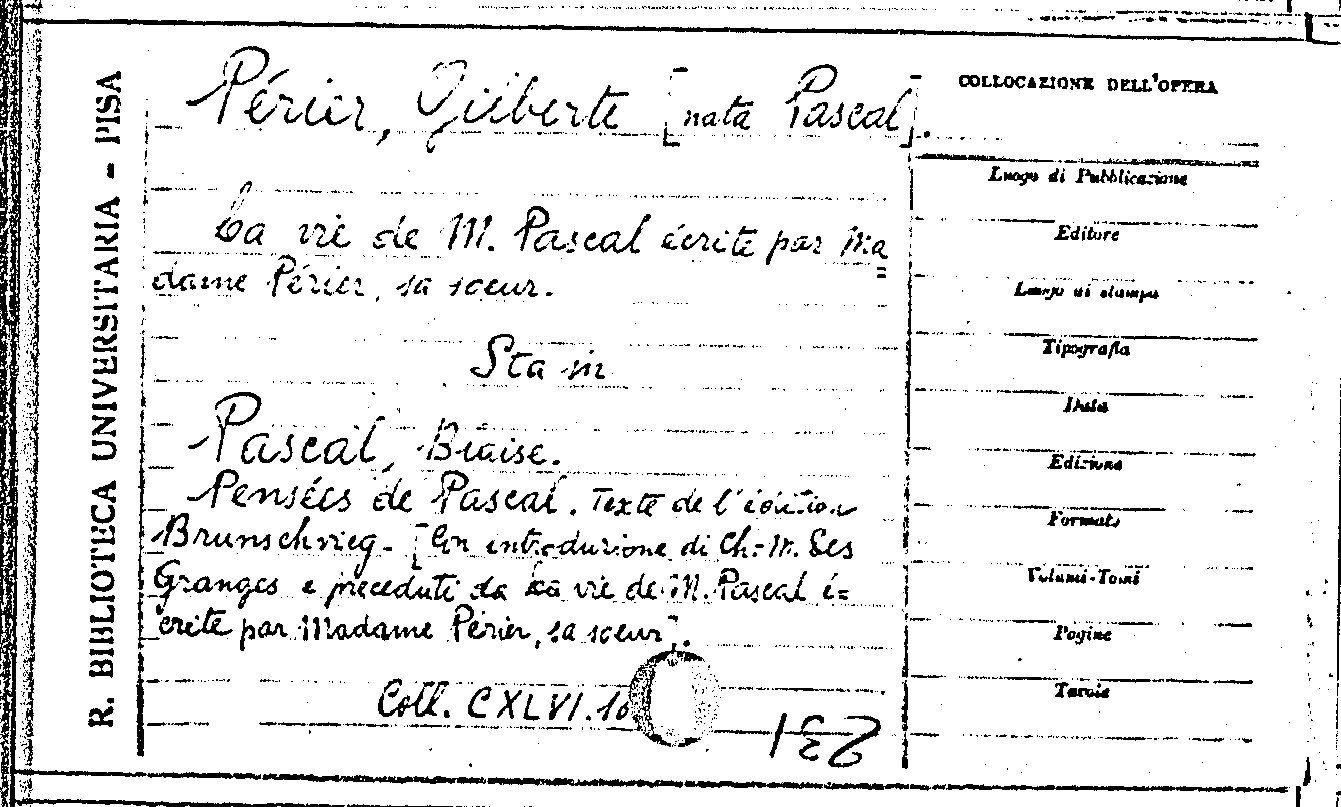 R. BIBLIOTECA UNIVERSITARIA - PISA
Périer, Gilberte [nata Pascal].
La vie de M. Pascal écrite par Ma=
dame Périer, sa soeur.
Sta in
Pascal, Blaise.
Pensées de Pascal. Texte de l'édition
Brunschvicg. [Con introduzione di Ch.-M. Des
Granges e preceduti da La vie de M. Pascal é=
crite par Madame Périer, sa soeur].
Coll. CXLVI. 10
231
COLLOCAZIONE DELL'OPERA
Luogo di Pubblicazione
Editore
Luogo di stampa
Tipografia
Data
Edizione
Formato
Volumi-Tomi
Pagine
Tavole